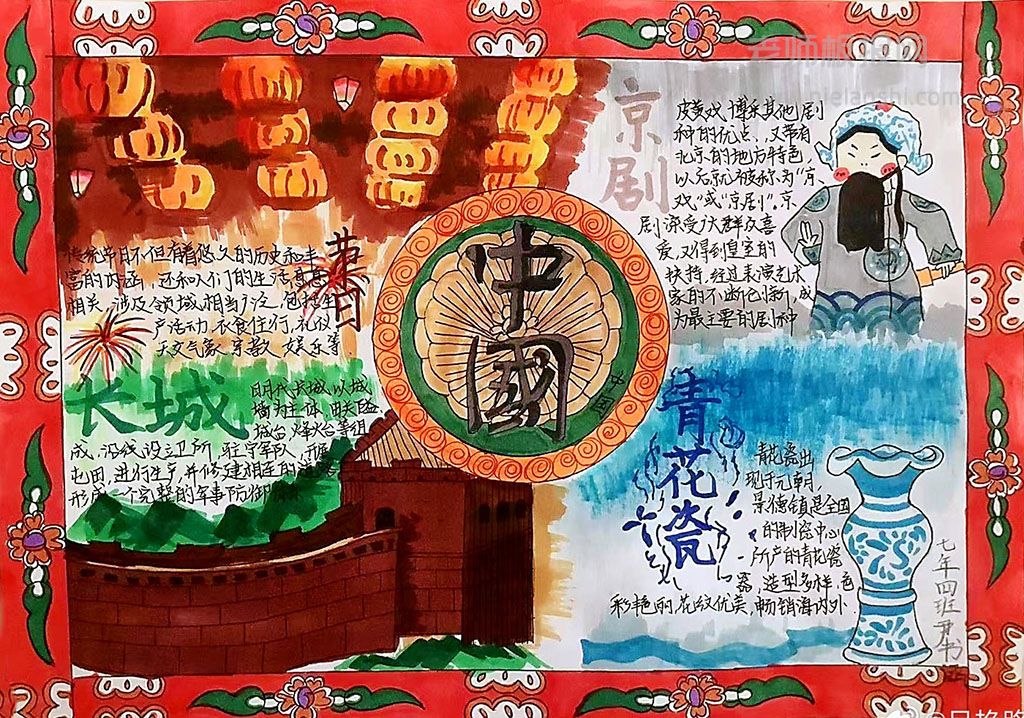 老师板报网
nielanshi.com
京剧
皮黄戏博采其他剧
种的优点,又带有
北京的地方特色,
以后就被称为"京
戏"或"京剧"。京
剧深受广大群众喜
爱,又得到皇室的
扶持,经过表演艺术
家的不断创新,成
为最主要的剧种
节日
传统节日不但有着悠久的历史和丰
富的内涵,还和人们的生活息息
相关,涉及领域相当广泛,包括生
产活动,衣食住行,礼仪
天文气象 宗教 娱乐等
中國
中国
长城
明代长城以城
墙为主体,由关隘
城台,烽火台等组
成,沿线设卫所,驻守军队
屯田,进行生产,并修建相连的
形成一个完整的军事防御
青花瓷
青花瓷出
现于元朝,
景德镇是全国
的制瓷中心
所产的青花瓷
器,造型多样,色
彩艳丽,花纹优美,畅销海内外
七年四班